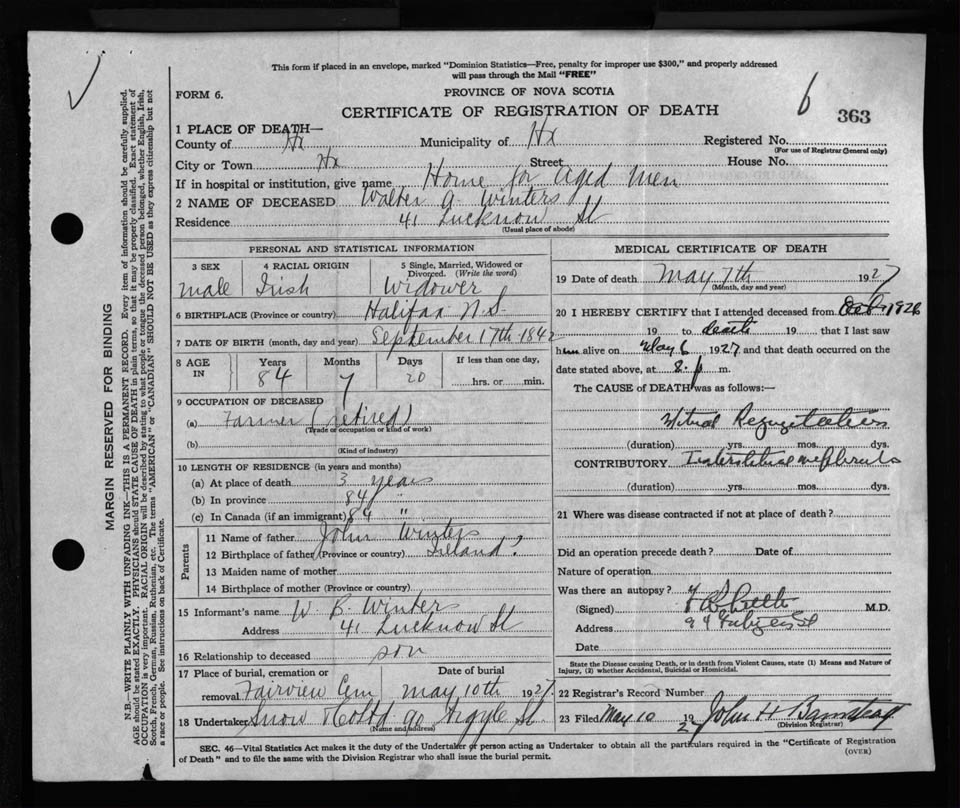 This form if placed in an envelope, marked "Dominion Statistics—Free, penalty for improper use $300," and properly addressed
will pass through the Mail "FREE"
FORM 6.
PROVINCE OF NOVA SCOTIA
6
363
CERTIFICATE OF REGISTRATION OF DEATH
1 PLACE OF DEATH—
County of Hx Municipality of Hx Registered No.
(For use of Registrar General only)
City or Town Hx Street House No.
If in hospital or institution, give name Home for Aged Men
2 NAME OF DECEASED Walter A. Winters
Residence 41 Lucknow St
(Usual place of abode)
PERSONAL AND STATISTICAL INFORMATION
3 SEX 4 RACIAL ORIGIN 5 Single, Married, Widowed or
Divorced. (Write the word)
male Irish Widower
6 BIRTHPLACE (Province or country) Halifax N.S.
7 DATE OF BIRTH (month, day and year) September 17th 1842
8 AGE IN Years Months Days If less than one day,
84 7 20 hrs. or min.
9 OCCUPATION OF DECEASED
(a) Farmer (retired)
(Trade or occupation or kind of work)
(b)
(Kind of industry)
10 LENGTH OF RESIDENCE (in years and months)
(a) At place of death 3 years
(b) In province 84 "
(c) In Canada (if an immigrant) 84 "
Parents
11 Name of father John Winters
12 Birthplace of father (Province or country) Ireland?
13 Maiden name of mother
14 Birthplace of mother (Province or country)
15 Informant's name W B. Winters
Address 41 Lucknow St
16 Relationship to deceased son
17 Place of burial, cremation or Date of burial
removal Fairview Cem May 10th 1927.
18 Undertaker Snow & Co Ltd 90 Argyle St.
(Name and address)
MEDICAL CERTIFICATE OF DEATH
19 Date of death May 7th 1927
(Month, day and year)
20 I HEREBY CERTIFY that I attended deceased from 1926
19 to death 19 that I last saw
him alive on May 6 1927 and that death occurred on
date stated above, at 8. p m.
The CAUSE of DEATH was as follows:—
Mitral Regurgitation
(duration) yrs. mos. dys.
CONTRIBUTORY Interstitial nephritis
(duration) yrs. mos. dys.
21 Where was disease contracted if not at place of death?
Did an operation precede death? Date of
Nature of operation
Was there an autopsy?
(Signed) M.D.
Address 94
Date
State the Disease causing Death, or in death from Violent Causes, state (1) Means and Nature of
Injury, (2) whether Accidental, Suicidal or Homicidal.
22 Registrar's Record Number
23 Filed May 10 192 John H
(Division Registrar)
SEC. 46—Vital Statistics Act makes it the duty of the Undertaker or person acting as Undertaker to obtain all the particulars required in the "Certificate of Registration
of Death" and to file the same with the Division Registrar who shall issue the burial permit.
(OVER)
MARGIN RESERVED FOR BINDING
N.B.—WRITE PLAINLY WITH UNFADING INK—THIS IS A PERMANENT RECORD. Every item of information should be carefully supplied.
AGE should be stated EXACTLY. PHYSICIANS should STATE CAUSE OF DEATH in plain terms, so that it may be properly classified. Exact statement of
OCCUPATION is very important. RACIAL ORIGIN will be described by stating to what people or tongue the deceased person belonged, whether English, Irish,
Scotch, French, German, Russian, Ruthenian, etc. The terms "AMERICAN" or "CANADIAN" SHOULD NOT BE USED as they express citizenship but not
a race or people. See instructions on back of Certificate.